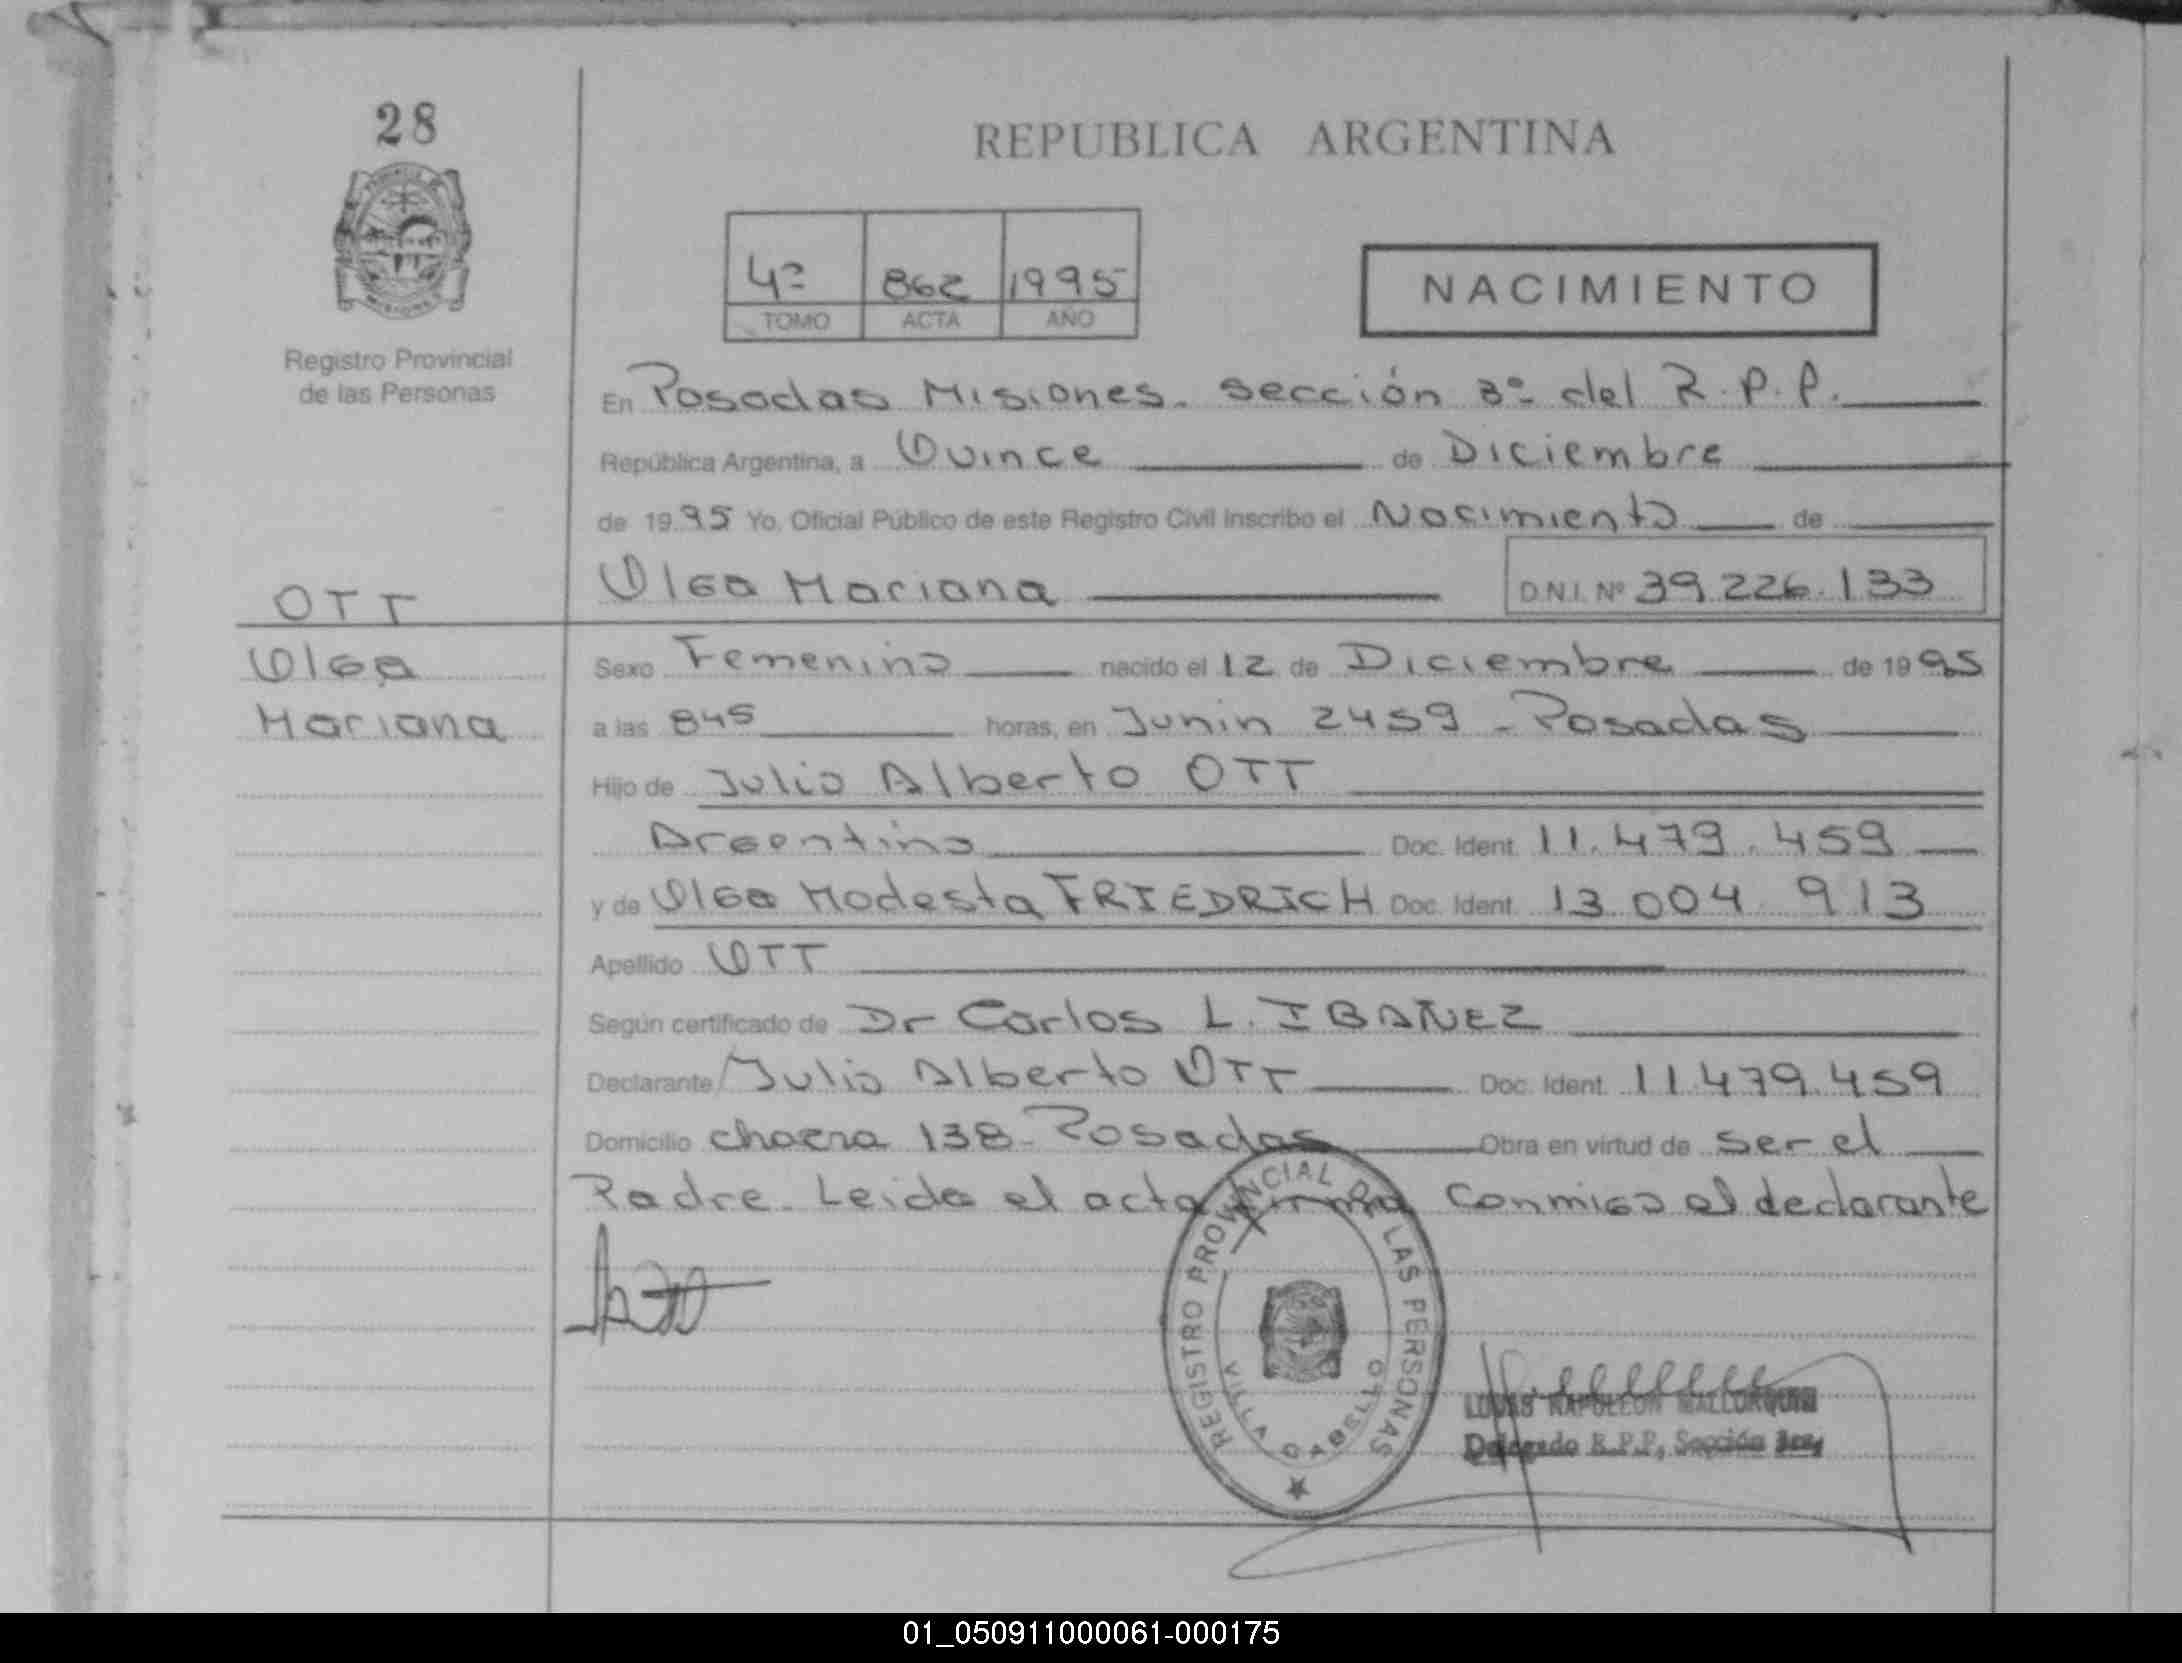 28
REPUBLICA ARGENTINA
4º 862 1995
TOMO ACTA AÑO
NACIMIENTO
Registro Provincial
de las Personas
En Posadas Misiones. Sección 3º del R.P.P.
República Argentina, a Quince de Diciembre
de 1995 Yo, Oficial Público de este Registro Civil Inscribo el Nacimiento de
Olga Mariana D.N.I. Nº 39.226.133
OTT
Olga
Mariana
Sexo Femenino nacido el 12 de Diciembre de 1995
a las 845 horas, en Junin 2459 - Posadas
Hijo de Julio Alberto OTT
Argentino Doc. Ident. 11.479.459
y de Olga Modesta FRIEDRICH Doc. Ident. 13 004 913
Apellido OTT
Según certificado de Dr Carlos L. IBAÑEZ
Declarante Julio Alberto OTT Doc. Ident. 11.479.459
Domicilio chacra 138 - Posadas Obra en virtud de ser el
Padre. Leida el acta firma conmigo el declarante
REGISTRO PROVINCIAL DE LAS PERSONAS
VILLA CABELLO
NAPOLEON MALLORQUIN
Delegado R.P.P. Sección 3ra.
01_050911000061-000175